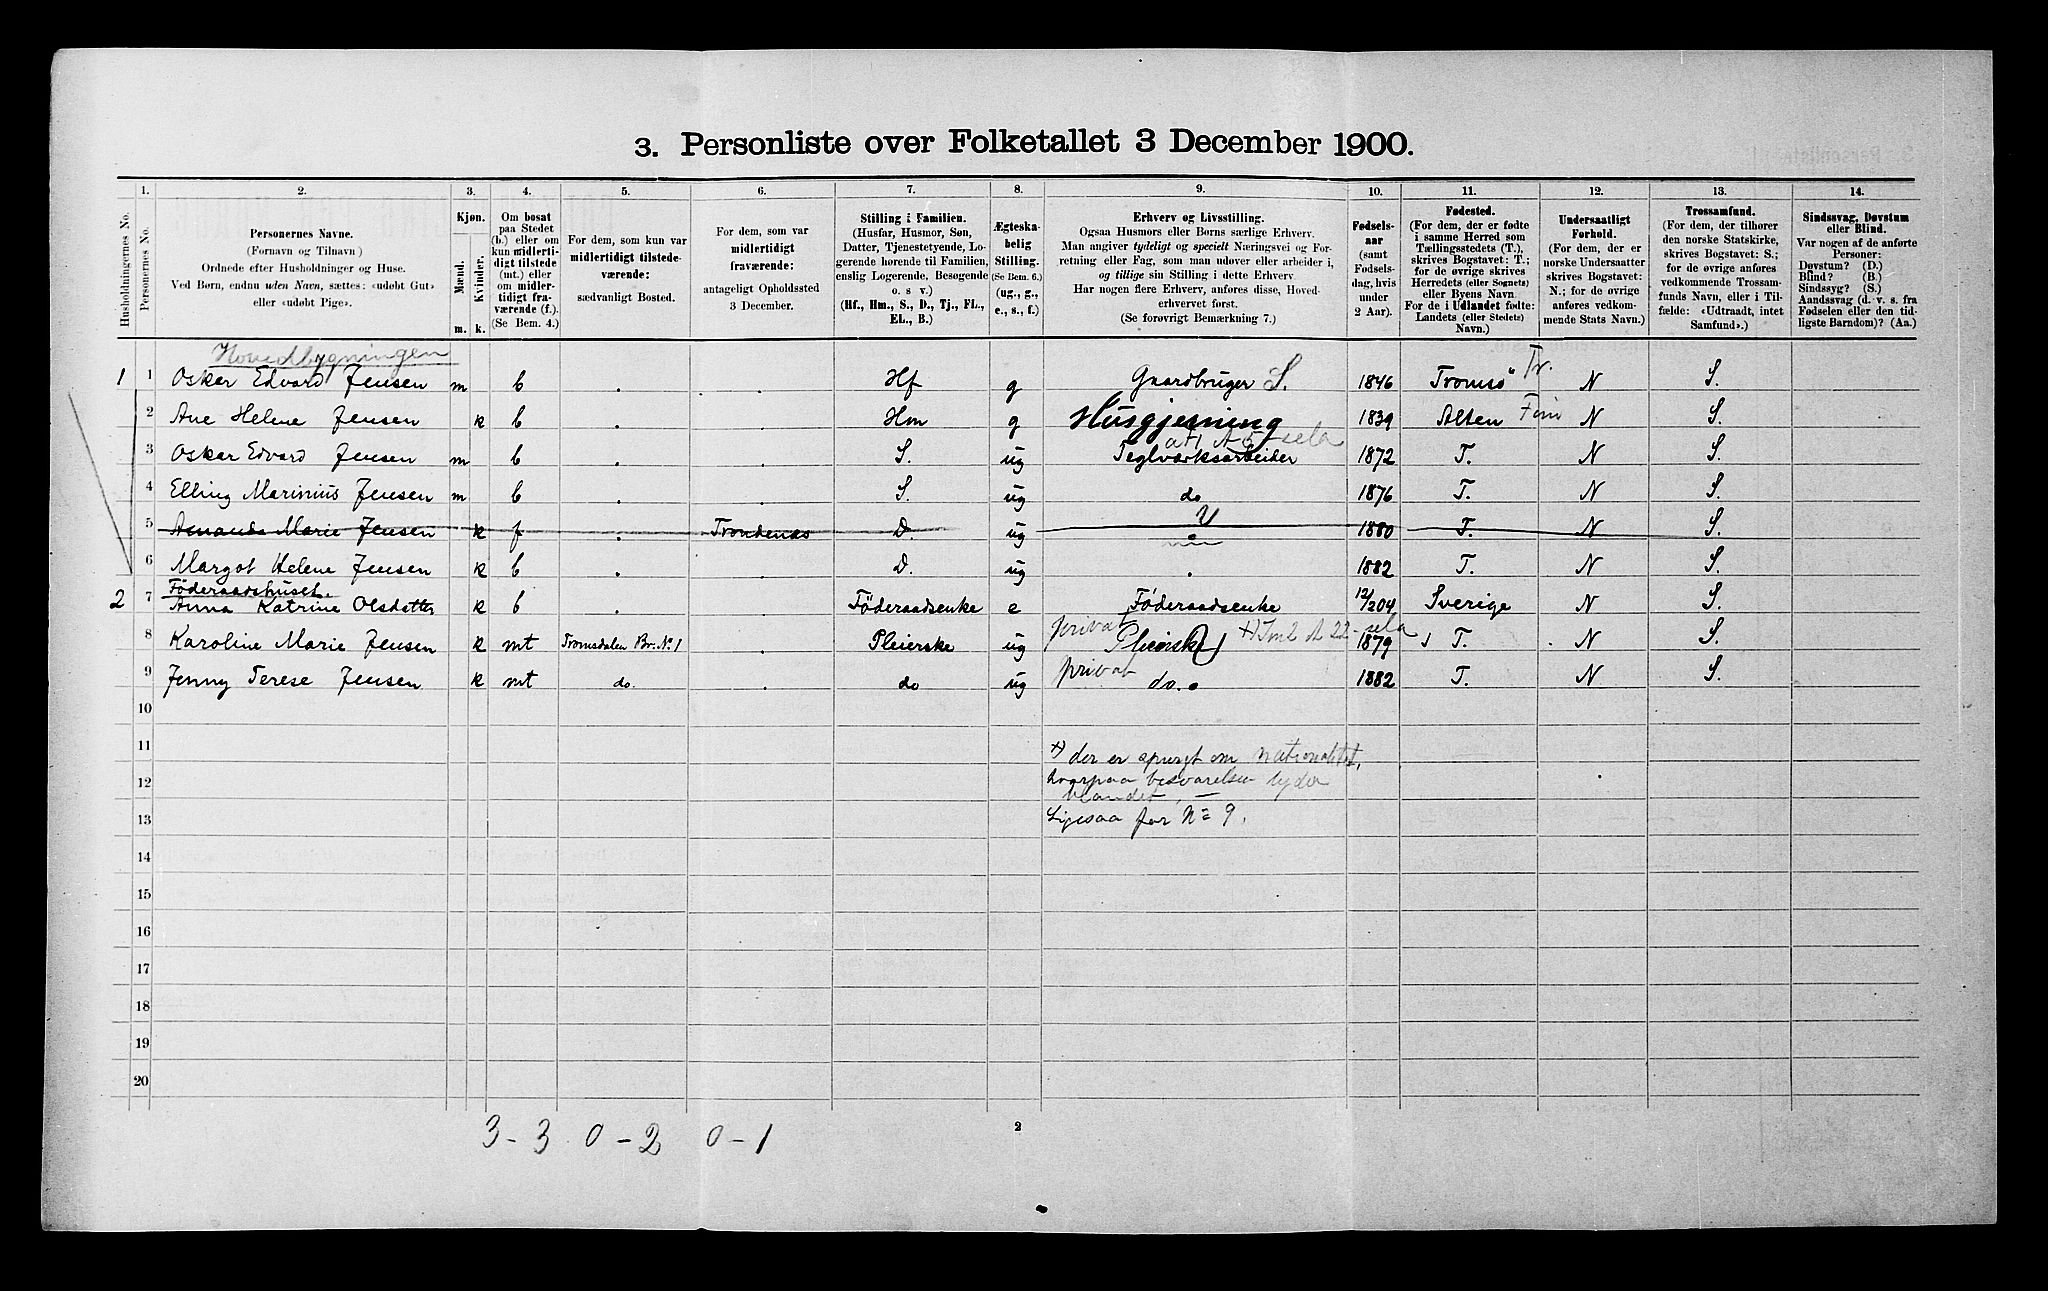 3. Personliste over Folketallet 3 December 1900.
1. 2. 3. 4. 5. 6. 7. 8. 9. 10. 11. 12. 13. 14.
Husholdningernes No.
Personernes No.
Personernes Navne.
(Fornavn og Tilnavn)
Ordnede efter Husholdninger og Huse.
Ved Børn, endnu uden Navn, sættes: «udøbt Gut»
eller «udøbt Pige».
Kjøn.
Mænd.
Kvinder.
m. k.
Om bosat
paa Stedet
(b.) eller om
kun midlerti-
digt tilstede
(mt.) eller
om midler-
tidigt fra-
værende (f.).
(Se Bem. 4.)
For dem, som kun var
midlertidigt tilstede-
værende:
sædvanligt Bosted.
For dem, som var
midlertidigt
fraværende:
antageligt Opholdssted
3 December.
Stilling i Familien.
(Husfar, Husmor, Søn,
Datter, Tjenestetyende, Lo-
gerende hørende til Familien,
enslig Logerende, Besøgende
o. s v.)
(Hf., Hm., S., D., Tj., FL.,
EL., B.)
Ægteska-
belig
Stilling.
(Se Bem. 6.)
(ug., g.,
e., s., f.)
Erhverv og Livsstilling.
Ogsaa Husmors eller Børns særlige Erhverv.
Man angiver tydeligt og specielt Næringsvei og For-
retning eller Fag, som man udøver eller arbeider i,
og tillige sin Stilling i dette Erhverv.
Har nogen flere Erhverv, anføres disse, Hoved-
erhvervet først.
(Se forøvrigt Bemærkning 7.)
Fødsels-
aar
(samt
Fødsels-
dag, hvis
under
2 Aar).
Fødested.
(For dem, der er fødte
i samme Herred som
Tællingsstedets (T.),
skrives Bogstavet: T.;
for de øvrige skrives
Herredets (eller Sognets)
eller Byens Navn
For de i Udlandet fødte:
Landets (eller Stedets)
Navn.)
Undersaatligt
Forhold.
(For dem, der er
norske Undersaatter
skrives Bogstavet:
N.; for de øvrige
anføres vedkom-
mende Stats Navn.)
Trossamfund.
(For dem, der tilhører
den norske Statskirke,
skrives Bogstavet: S.;
for de øvrige anføres
vedkommende Trossam-
funds Navn, eller i Til-
fælde: «Udtraadt, intet
Samfund».)
Sindssvag, Døvstum
eller Blind.
Var nogen af de anførte
Personer:
Døvstum? (D.)
Blind? (B.)
Sindssyg? (S.)
Aandssvag (d. v. s. fra
Fødselen eller den tid-
ligste Barndom)? (Aa.)
Hovedbygningen
1 1 Oskar Edvard Jensen m b . . Hf g Gaardbruger S. 1846 Tromsø Tr. N S.
2 Ane Helene Jensen k b . . Hm g Husgjerning 1839 Alten Fin N S.
3 Oskar Edvard Jensen m b . . S. ug Teglværksarbeider 1872 T. N S.
4 Elling Marinius Jensen m b . . S. ug do 1876 T. N S.
5 Amanda Marie Jensen k f . Trondenæs D. ug 1880 T. N S.
6 Margot Helene Jensen k b . . D. ug . 1882 T. N S.
Föderaadshuset.
2 7 Anna Katrine Olsdatter k b . Föderaadsenke e Föderaadsenke 12/2 04 Sverige N S.
8 Karoline Marie Jensen k mt Tromsdalen Br. No 1 . Pleierske ug privat Pleierske 1879 T. N S.
9 Jenny Terese Jensen k mt do. . do ug privat do. 1882 T. N S.
10
11
12
13
14
15
16
17
18
19
20
x) der er spurgt om nationalitet,
hvorpaa besvarelsen lyder
blandet. —
Ligesaa for No 9.
3 - 3 0 - 2 0 - 1
2